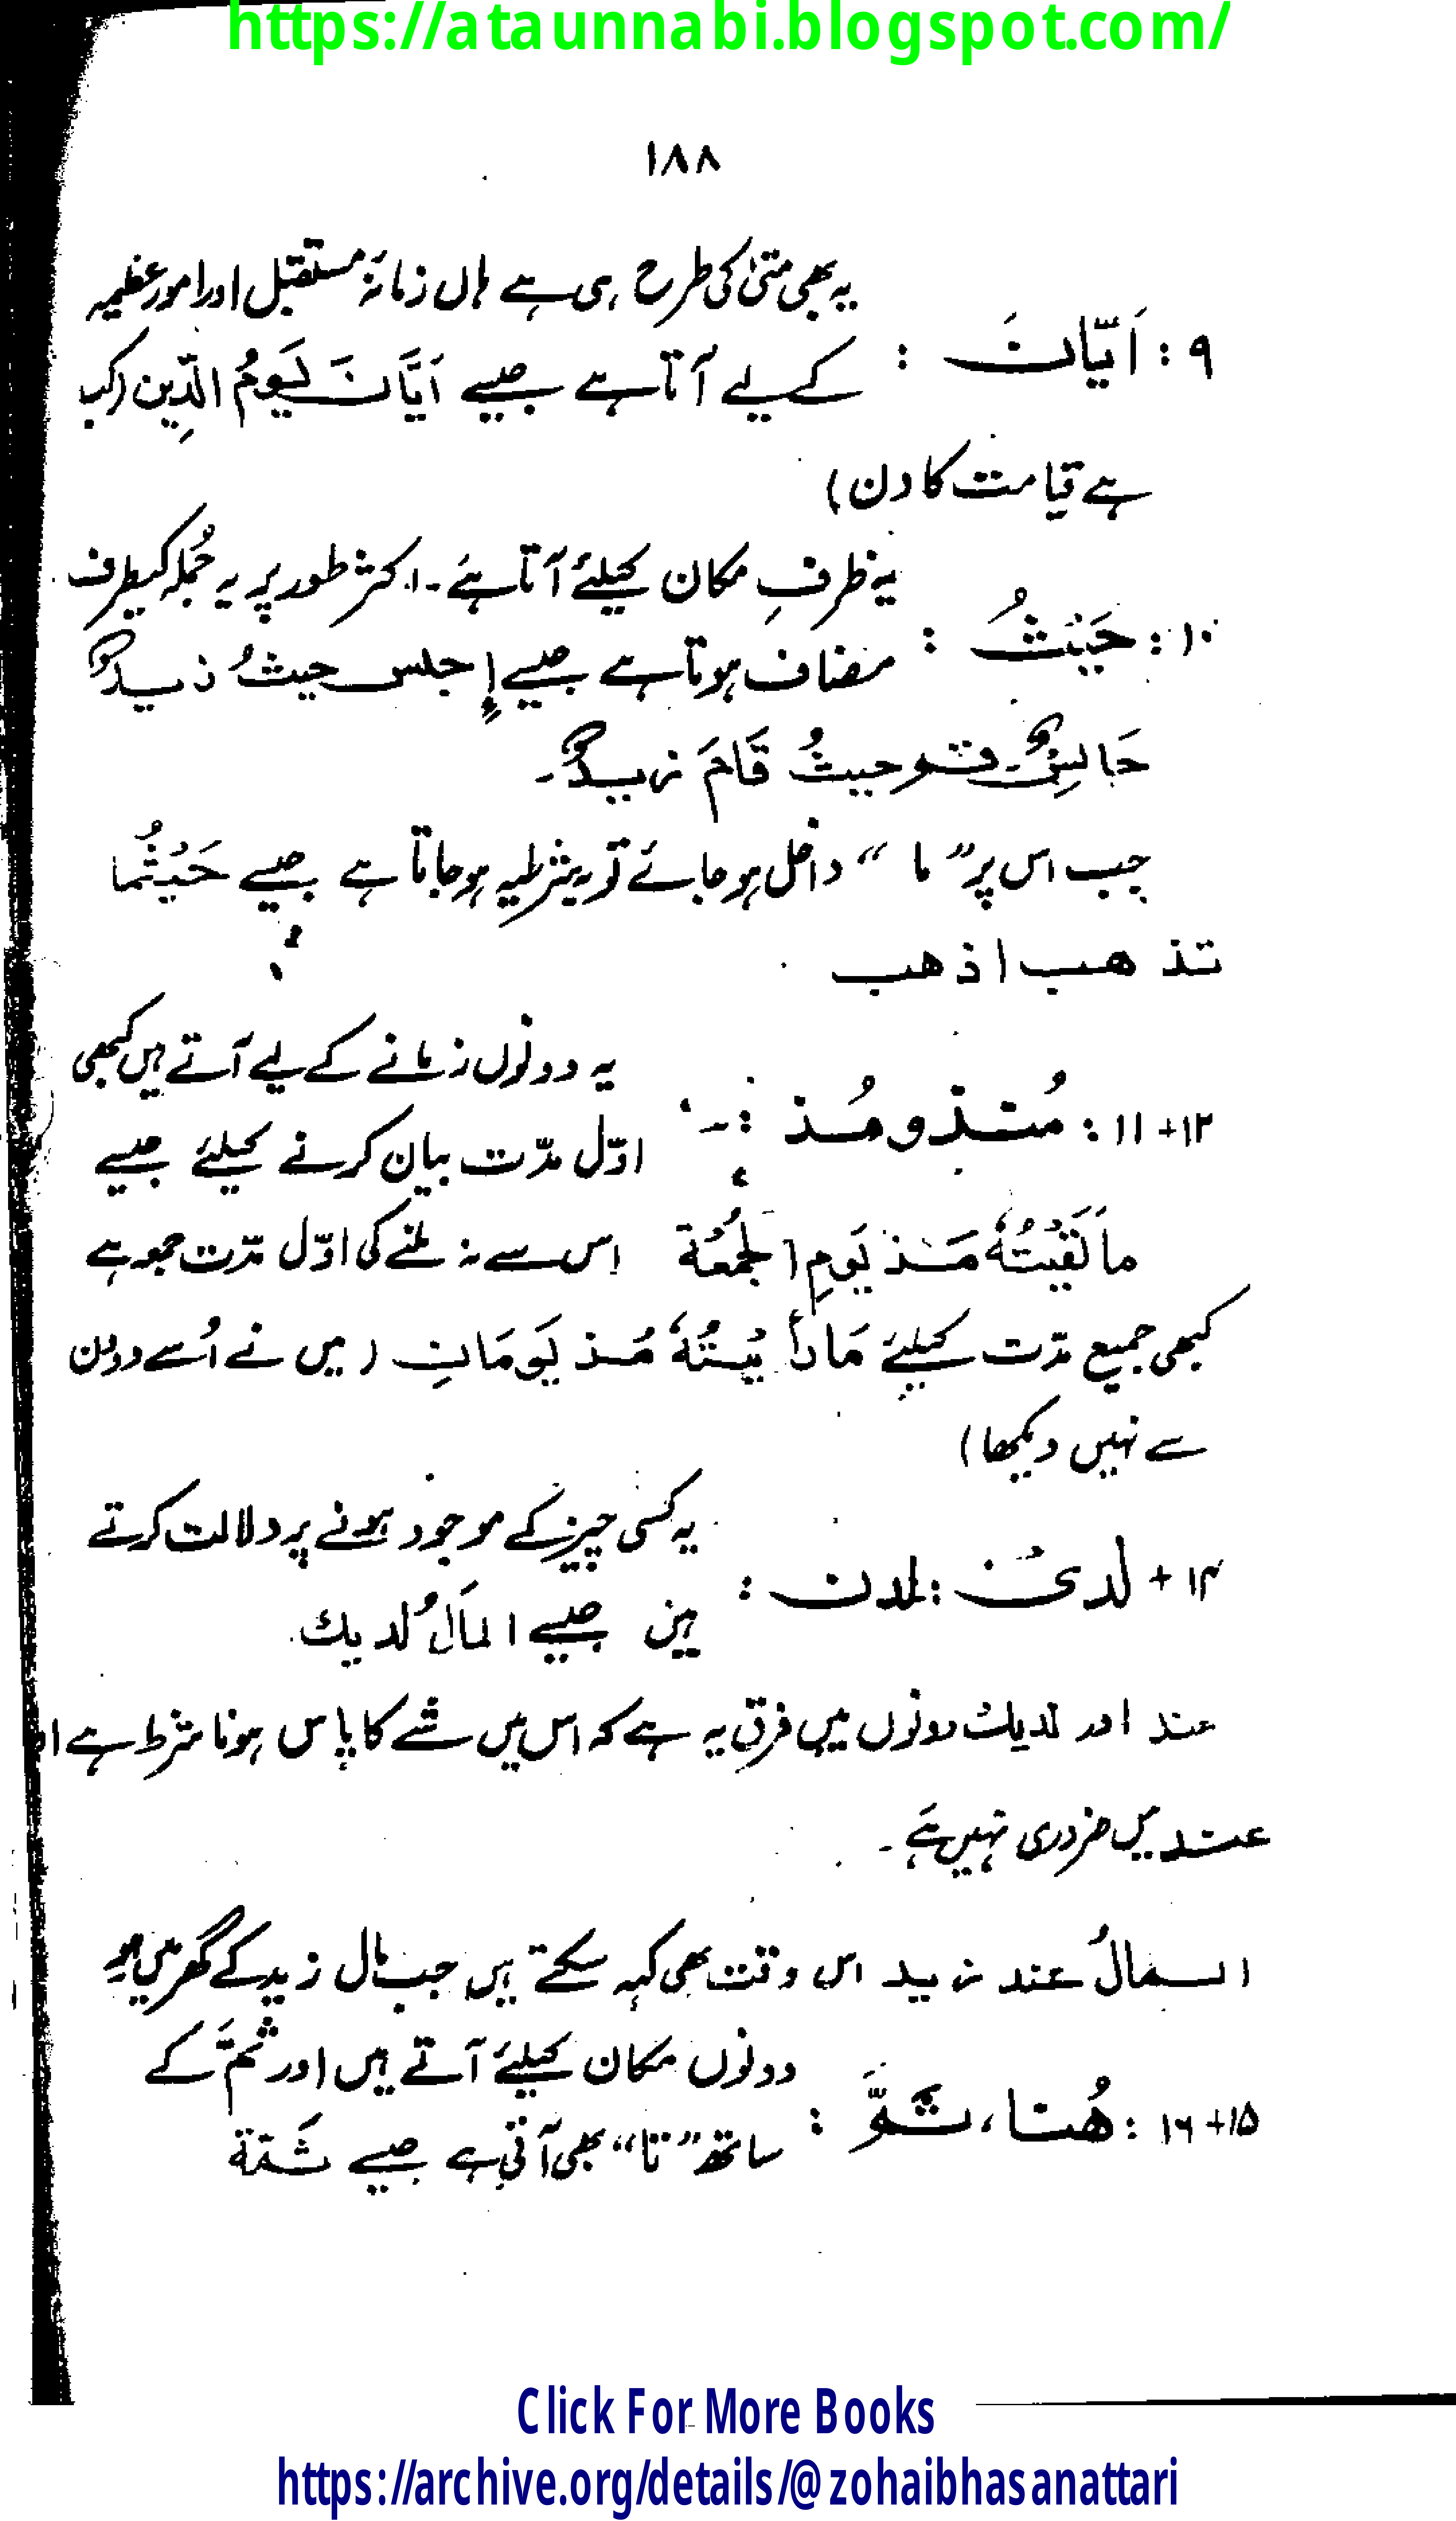 https://ataunnabi.blogspot.com/
١٨٨
یہ بھی متیٰ کی طرح ہی ہے ہاں زمانۂ مستقبل اور امور عظیمہ
٩ : اَیَّانَ :
کے لیے آتا ہے جیسے اَیَّانَ یَومُ الدِّین (کب
ہے قیامت کا دن)
یہ ظرفِ مکان کیلئے آتا ہے۔ اکثر طور پر یہ جُملہ کیطرف
١٠ : حَیثُ :
مضاف ہوتا ہے جیسے اِجلس حیثُ زیدٌ
جَالِسٌ۔ قُو حیثُ قَامَ زیدٌ۔
جب اس پر ”ما“ داخل ہو جائے تو یہ شرطیہ ہو جاتا ہے جیسے حَیْثُما
تذهب اذهب
یہ دونوں زمانے کے لیے آتے ہیں کبھی
١٢+١١ : مُنذُ و مُذ :
اوّل مدّت بیان کرنے کیلئے جیسے
مَا لَقَیْتُہٗ مَنذ یَومِ الجُمُعَة اس سے نہ ملنے کی اوّل مدّت جمعہ ہے
کبھی جمیع مدّت کیلئے مَا رأَیْتُہٗ مُذ یَومَانِ (میں نے اُسے دو دن
سے نہیں دیکھا)
یہ کسی چیز کے موجود ہونے پر دلالت کرتے
١٤ + لدیٰ : لدن :
ہیں جیسے المَالُ لدیك
عند اور لدیك دونوں میں فرق یہ ہے کہ اس میں شے کا پاس ہونا شرط ہے
عند میں ضروری نہیں ہَے۔
المالُ عند زید اس وقت بھی کہہ سکتے ہیں جب مال زید کے گھر میں ہو
دونوں مکان کیلئے آتے ہیں اور ثمَّ کے
١٥+ ١٦ : هُنا، ثَمَّ :
ساتھ ”تا“ بھی آتی ہے جیسے ثَمّة
Click For More Books
https://archive.org/details/@zohaibhasanattari